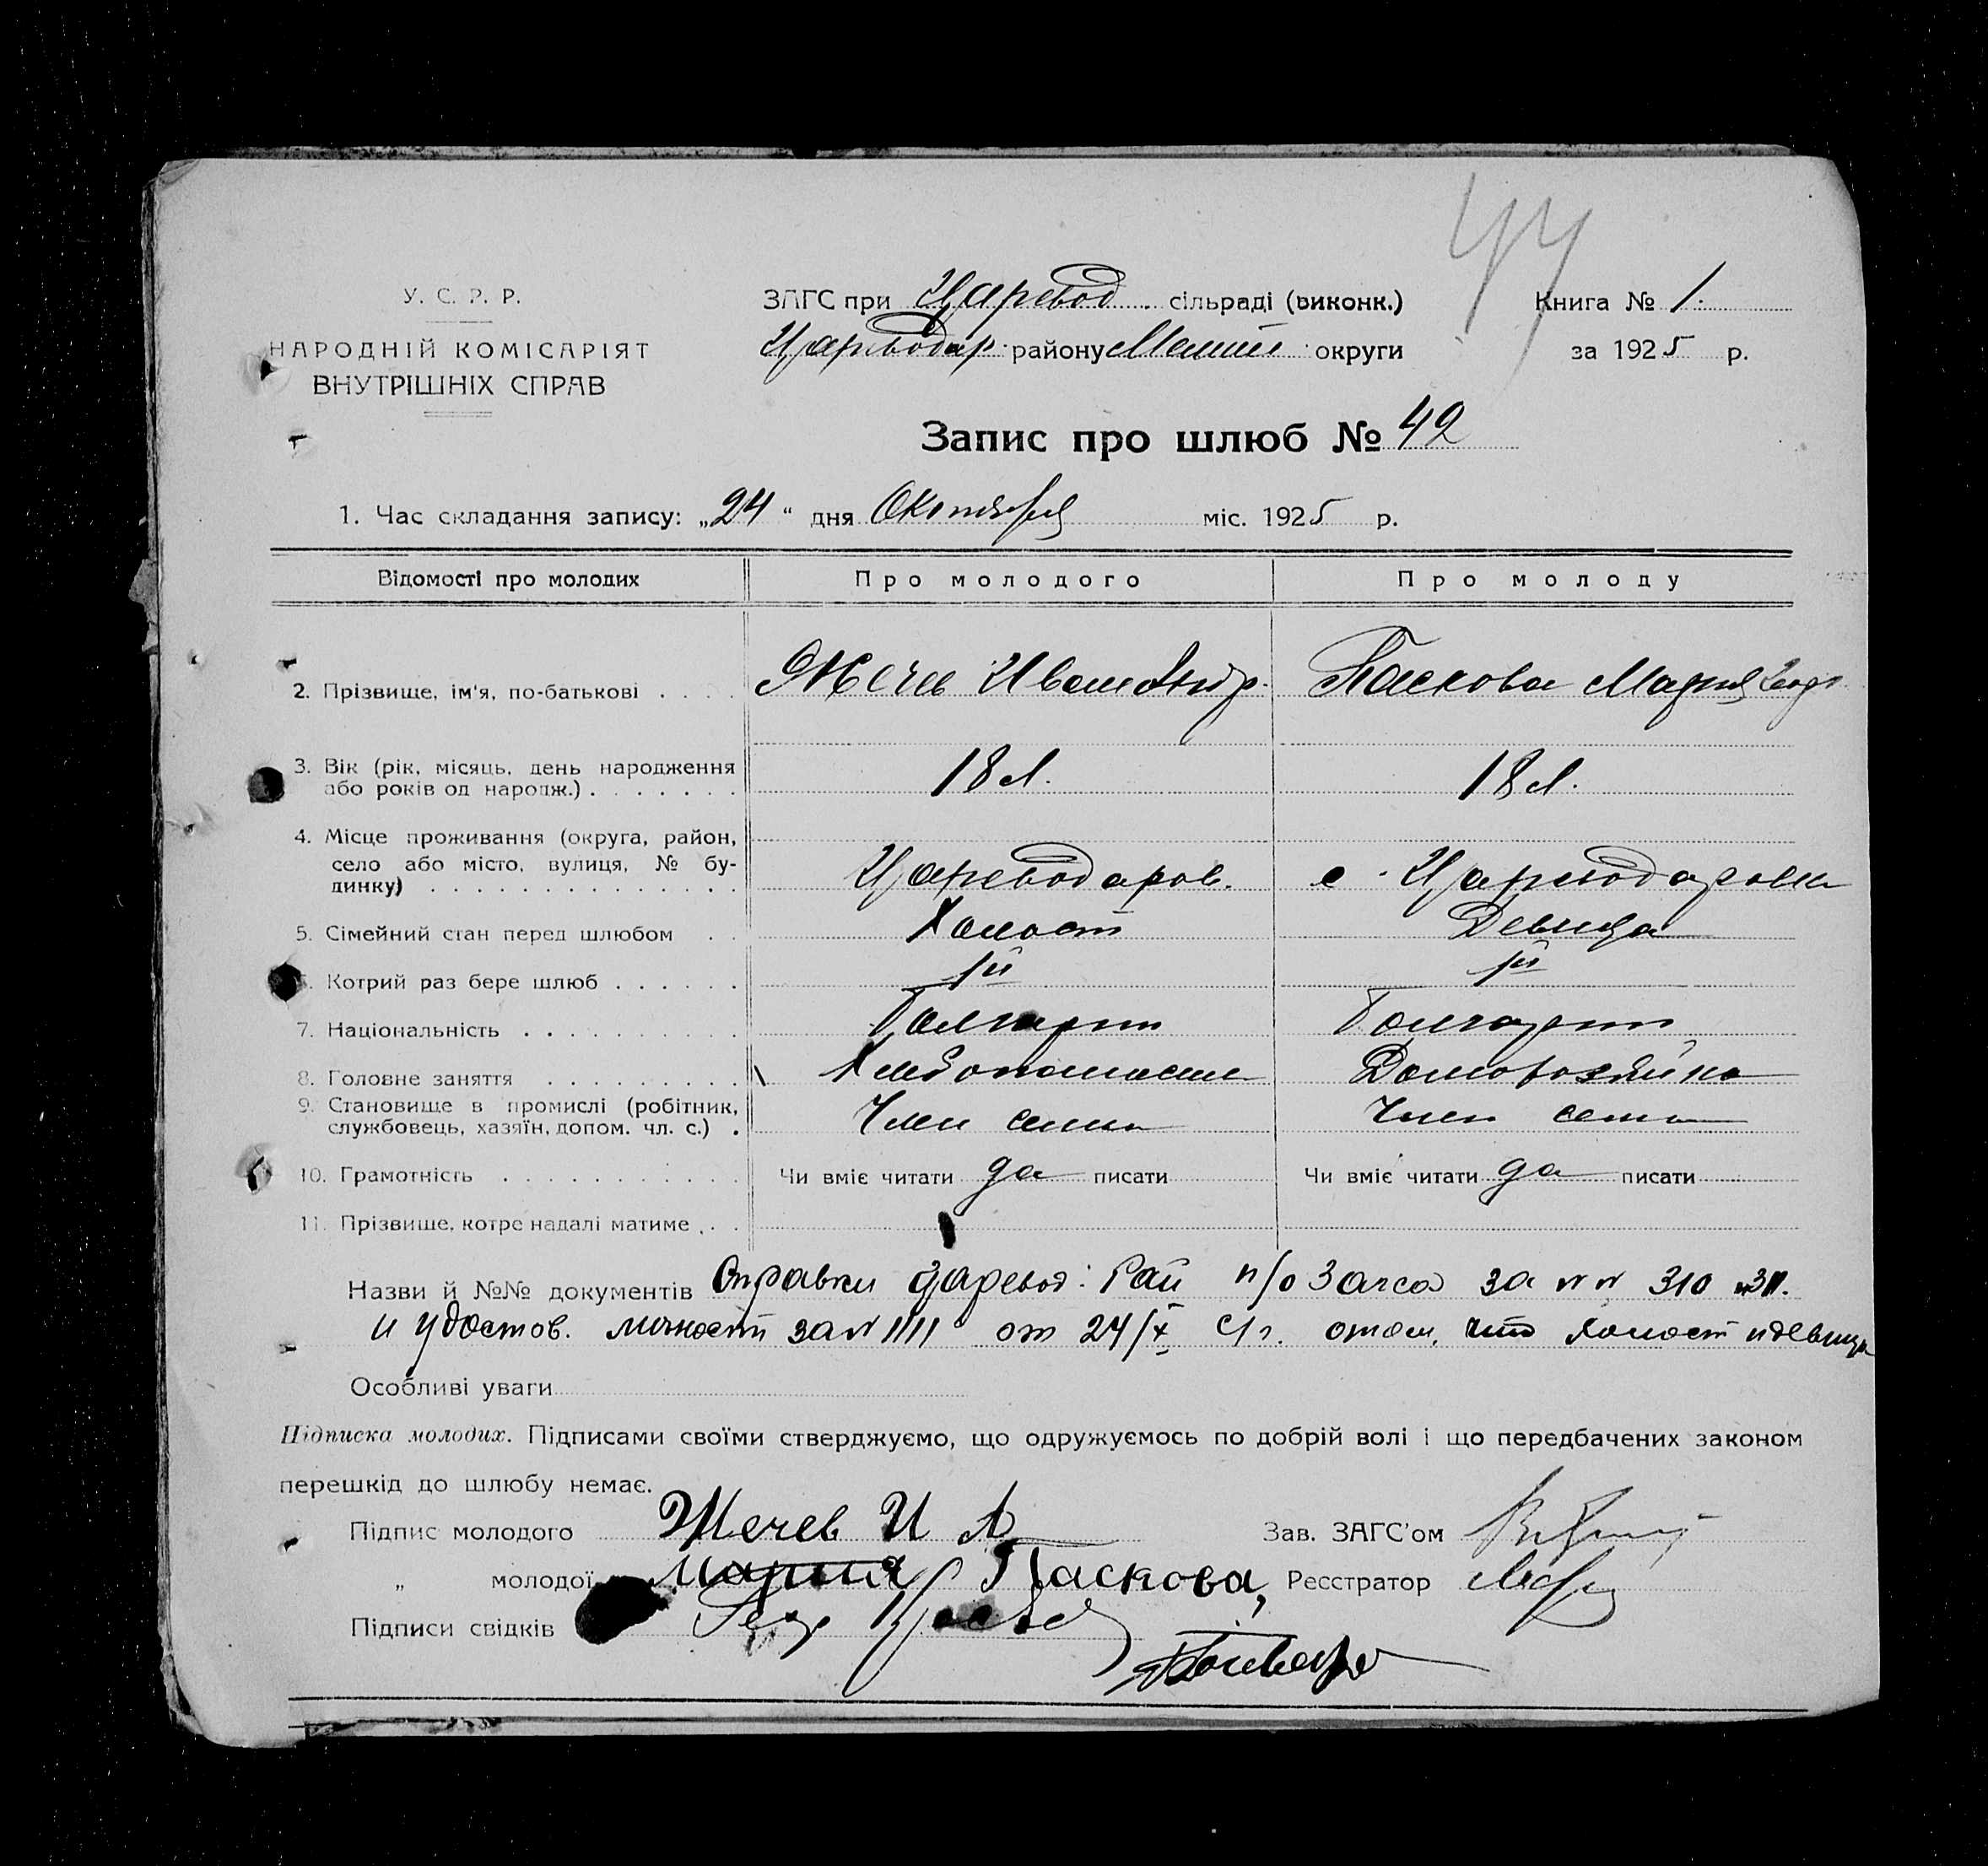 44
У. С. Р. Р.
НАРОДНІЙ КОМІСАРІЯТ
ВНУТРІШНІХ СПРАВ
ЗАГС при Царевод. сільраді (виконк.)
Цареводар. району округи
Книга № 1.
за 1925 р.
Запис про шлюб № 42
1. Час складання запису: „24" дня Октября міс. 1925 р.
Відомості про молодих Про молодого Про молоду
2. Прізвище, ім'я, по-батькові . . . . Жечев Иван Паскова Мария
3. Вік (рік, місяць, день народження
або років од народж.) . . . . . . . 18 л. 18 л.
4. Місце проживання (округа, район,
село або місто, вулиця, № бу-
динку) . . . . . . . . . . . . . . Цареводаров. с. Цареводаровка
5. Сімейний стан перед шлюбом . . Холост Девица
6. Котрий раз бере шлюб . . . . . . 1й 1й
7. Національність . . . . . . . . . . Болгарин Болгарин
8. Головне заняття . . . . . . . . . Хлебопашество Домохозяйка
9. Становище в промислі (робітник,
службовець, хазяїн, допом. чл. с.) . Член семьи Член семьи
10. Грамотність . . . . . . . . . . . Чи вміє читати да писати Чи вміє читати да писати
11. Прізвище, котре надалі матиме . . .
Назви й №№ документів Справки Царевод. Рай п/о Загса за №№ 310 и 311.
и удостов. личности за № 1111 от 24/X С/г. о том, что холост и девица
Особливі уваги
Підписка молодих. Підписами своїми стверджуємо, що одружуємось по добрій волі і що передбачених законом
перешкід до шлюбу немає.
Підпис молодого Жечев И А Зав. ЗАГС'ом
„ молодої Мария Паскова, Реєстратор
Підписи свідків